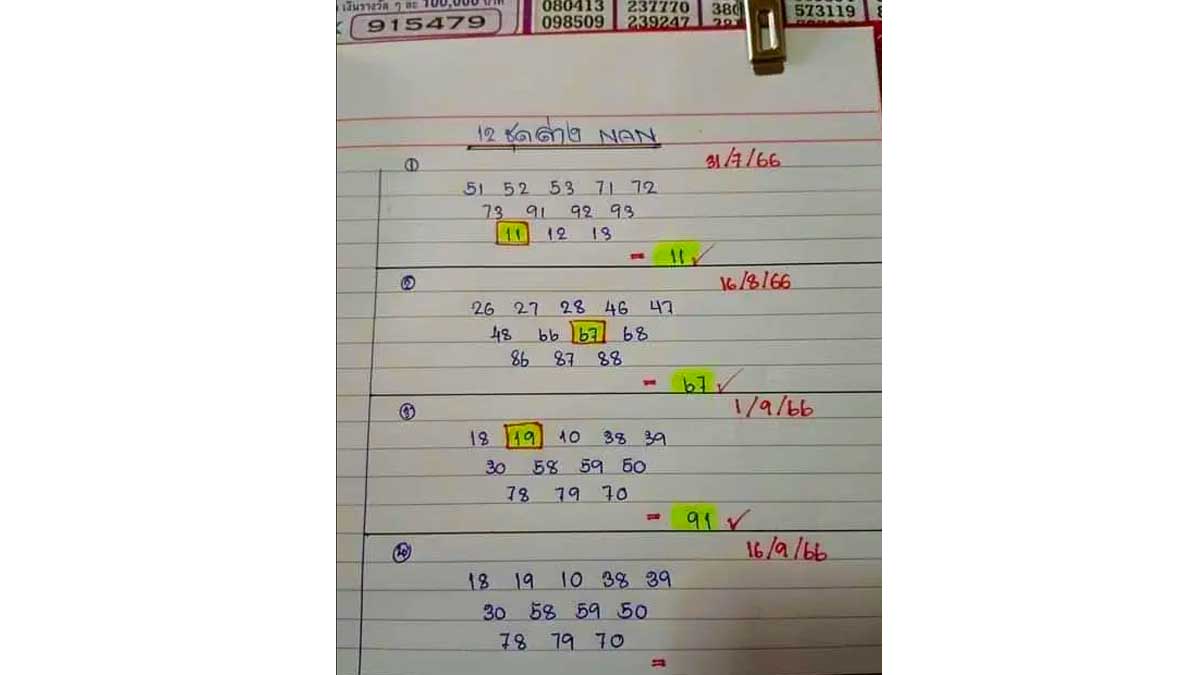 เงินรางวัล ๆ ละ 100,000 บาท
915479
080413 237770 380
098509 239247 573119
12 ชุดล่าง NAN
① 31/7/66
51 52 53 71 72
73 91 92 93
11 12 13
= 11 ✓
② 16/8/66
26 27 28 46 47
48 66 67 68
86 87 88
= 67 ✓
③ 1/9/66
18 19 10 38 39
30 58 59 50
78 79 70
= 91 ✓
④ 16/9/66
18 19 10 38 39
30 58 59 50
78 79 70
=